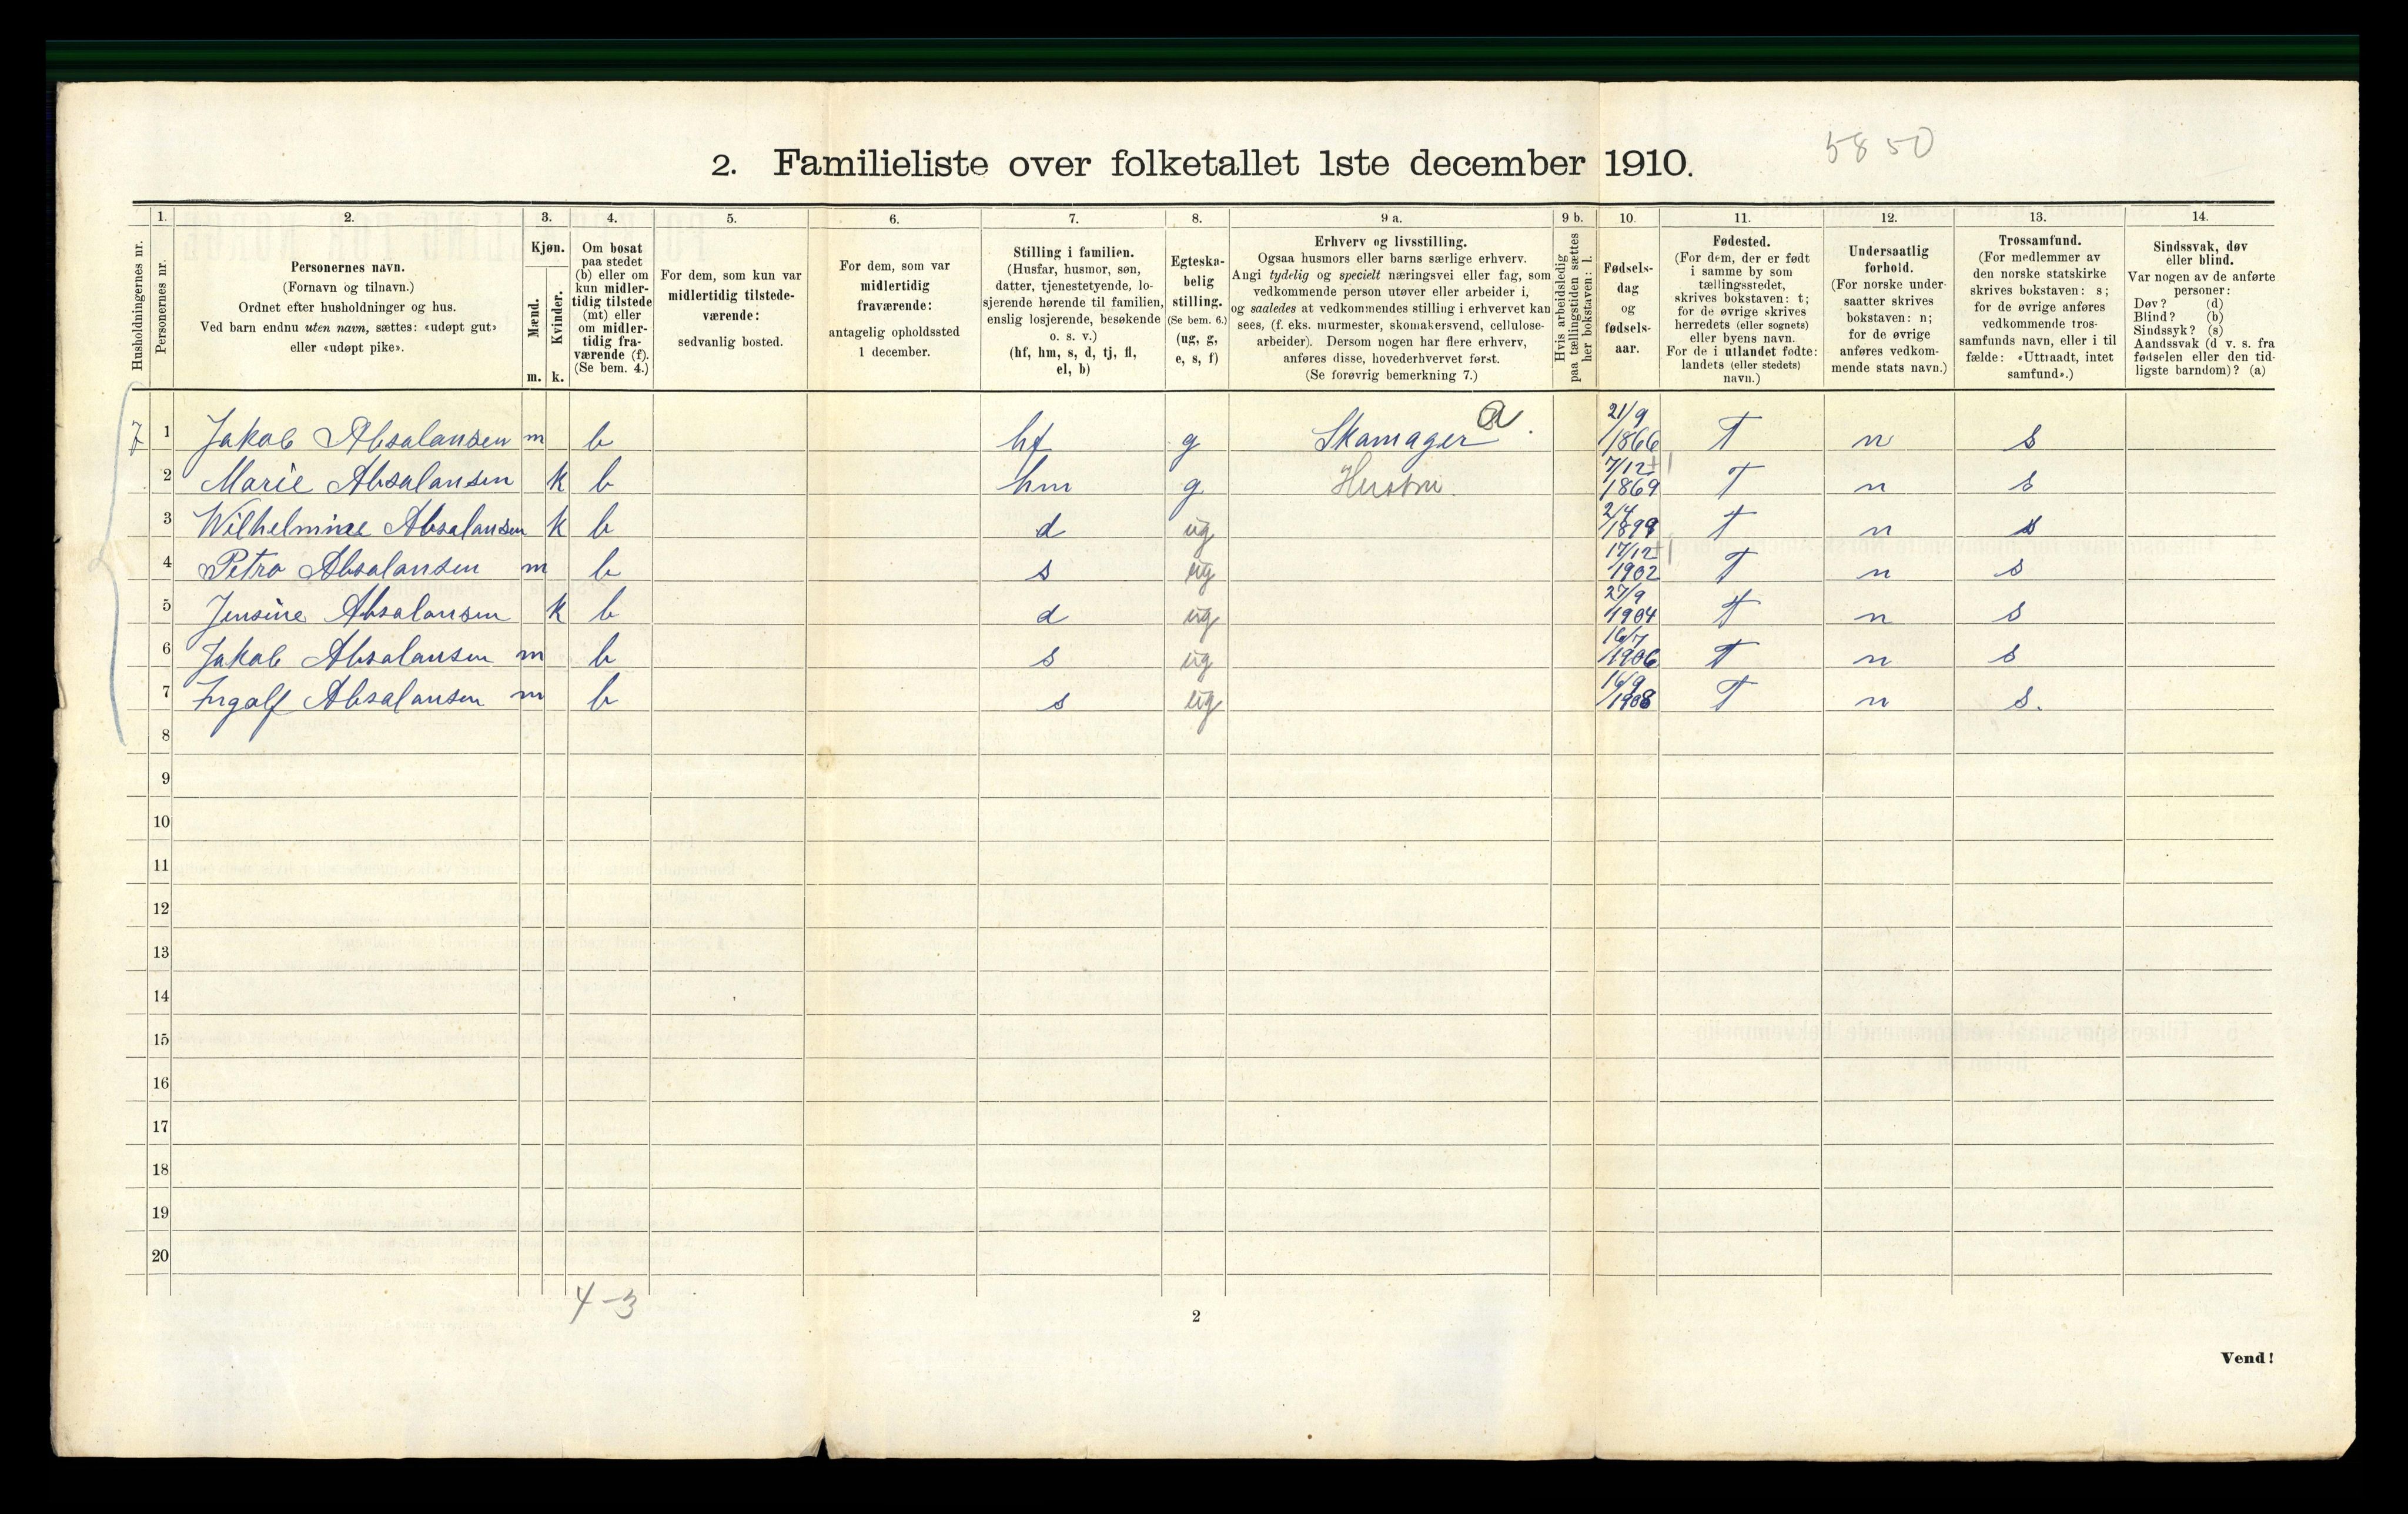 5850
2. Familieliste over folketallet 1ste december 1910.
Husholdningernes nr.
1. Personernes nr.
2. Personernes navn.
(Fornavn og tilnavn.)
Ordnet efter husholdninger og hus.
Ved barn endnu uten navn, sættes: «udøpt gut»
eller «udøpt pike».
3. Kjøn.
Mænd. m.
Kvinder. k.
4. Om bosat
paa stedet
(b) eller om
kun midler-
tidig tilstede
(mt) eller
om midler-
tidig fra-
værende (f).
(Se bem. 4.)
5. For dem, som kun var
midlertidig tilstede-
værende:
sedvanlig bosted.
6. For dem, som var
midlertidig
fraværende:
antagelig opholdssted
1 december.
7. Stilling i familien.
(Husfar, husmor, søn,
datter, tjenestetyende, lo-
sjerende hørende til familien,
enslig losjerende, besøkende
o. s. v.)
(hf, hm, s, d, tj, fl,
el, b)
8. Egteska-
belig
stilling.
(Se bem. 6.)
(ug, g,
e, s, f)
9 a. Erhverv og livsstilling.
Ogsaa husmors eller barns særlige erhverv.
Angi tydelig og specielt næringsvei eller fag, som
vedkommende person utøver eller arbeider i,
og saaledes at vedkommendes stilling i erhvervet kan
sees, (f. eks. murmester, skomakersvend, cellulose-
arbeider). Dersom nogen har flere erhverv,
anføres disse, hovederhvervet først.
(Se forøvrig bemerkning 7.)
9 b. Hvis arbeidsledig
paa tællingstiden sættes
her bokstaven: l.
10. Fødsels-
dag
og
fødsels-
aar.
11. Fødested.
(For dem, der er født
i samme by som
tællingsstedet,
skrives bokstaven: t;
for de øvrige skrives
herredets (eller sognets)
eller byens navn.
For de i utlandet fødte:
landets (eller stedets)
navn.)
12. Undersaatlig
forhold.
(For norske under-
saatter skrives
bokstaven: n;
for de øvrige
anføres vedkom-
mende stats navn.)
13. Trossamfund.
(For medlemmer av
den norske statskirke
skrives bokstaven: s;
for de øvrige anføres
vedkommende tros-
samfunds navn, eller i til
fælde: «Uttraadt, intet
samfund».)
14. Sindssvak, døv
eller blind.
Var nogen av de anførte
personer:
Døv? (d)
Blind? (b)
Sindssyk? (s)
Aandssvak (d v. s. fra
fødselen eller den tid-
ligste barndom)? (a)
7 1 Jakob Absalonsen m b hf g Skomager a. 21/9 1866 T n s
2 Marie Absalonsen k b hm g Hustru 7/12 1869 T n s
3 Wilhelmine Absalonsen k b d ug 2/4 1899 T n s
4 Petro Absalonsen m b s ug 17/12 1902 T n s
5 Jensine Absalonsen k b d ug 27/9 1904 T n s
6 Jakob Absalonsen m b s ug 16/7 1906 T n s
7 Ingolf Absalonsen m b s ug 16/9 1908 T n s.
8
9
10
11
12
13
14
15
16
17
18
19
20
4-3
2
Vend!